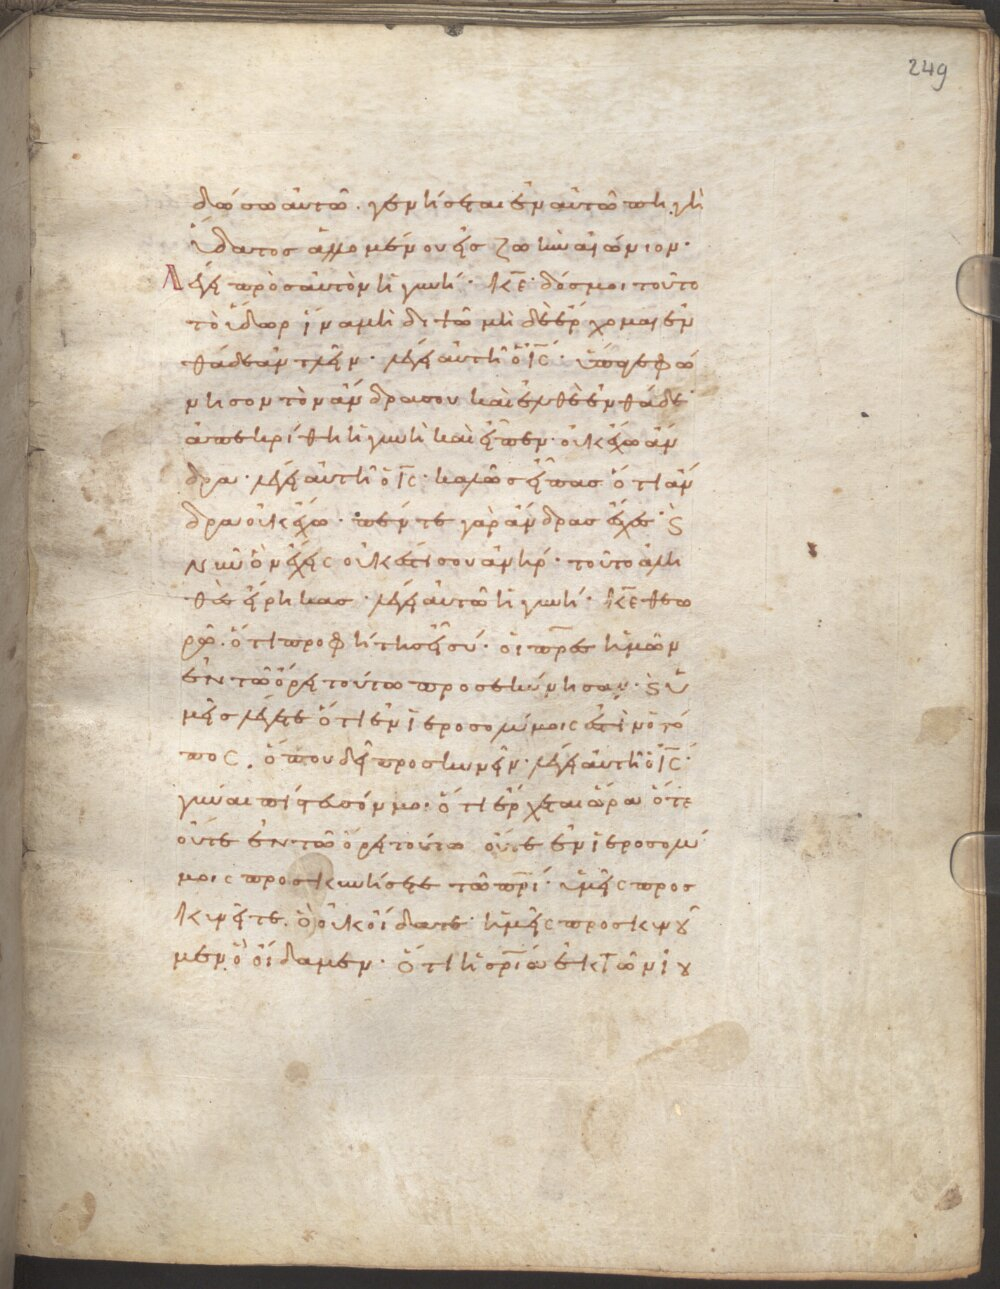 249
δώσω αὐτῶ· γενήσεται ἐν αὐτῶ πηγὴ
ὕδατος ἁλλομένου εἰς ζωὴν αἰώνιον·
Λέγει πρὸς αὐτὸν ἡ γυνή· κ̅ε̅ δός μοι τοῦτο
τὸ ὕδωρ ἵνα μὴ διψῶ μὴ δὲ ἔρχομαι ἐν
θάδε ἀντλεῖν· λέγει αὐτῆ ὁ ι̅ς̅· ὕπαγε φώ
νησον τὸν ἄνδρα σου καὶ ἐλθὲ ἐνθάδε·
ἀπεκρίθη ἡ γυνὴ καὶ εἶπεν· οὐκ ἔχω ἄν
δρα· λέγει αὐτῆ ὁ ι̅ς̅· καλῶς εἶπας ὅτι ἄν
δρα οὐκ ἔχω· πέντε γὰρ ἄνδρας ἔσχες· ϗ
νῦν ὃν ἔχεις οὐκ ἔστι σου ἀνήρ· τοῦτο ἀλη
θὲς εἴρηκας· λέγει αὐτῶ ἡ γυνή· κ̅ε̅ θεω
ρῶ· ὅτι προφήτης εἶ σύ· οἱ π̅ρ̅ε̅ς ἡμῶν
ἐν τῶ ὄρει τούτω προσεκύνησαν· ϗ ὑ
μεῖς λέγετε ὅτι ἐν ἱεροσολύμοις ἐστὶν ὁ τό
πος· ὅπου δεῖ προσκυνεῖν· λέγει αὐτῆ ὁ ι̅ς̅·
γύναι πίστευσόν μοι ὅτι ἔρχεται ὥρα ὅτε
οὔτε ἐν τῶ ὄρει τούτω οὔτε ἐν ἱεροσολύ
μοις προσκυνήσετε τῶ π̅ρ̅ί· ὑμεῖς προσ
κυνεῖτε ὃ οὐκ οἴδατε· ἡμεῖς προσκυνοῦ
μεν ὃ οἴδαμεν· ὅτι ἡ σ̅ρ̅ία ἐκ τῶν ἰου